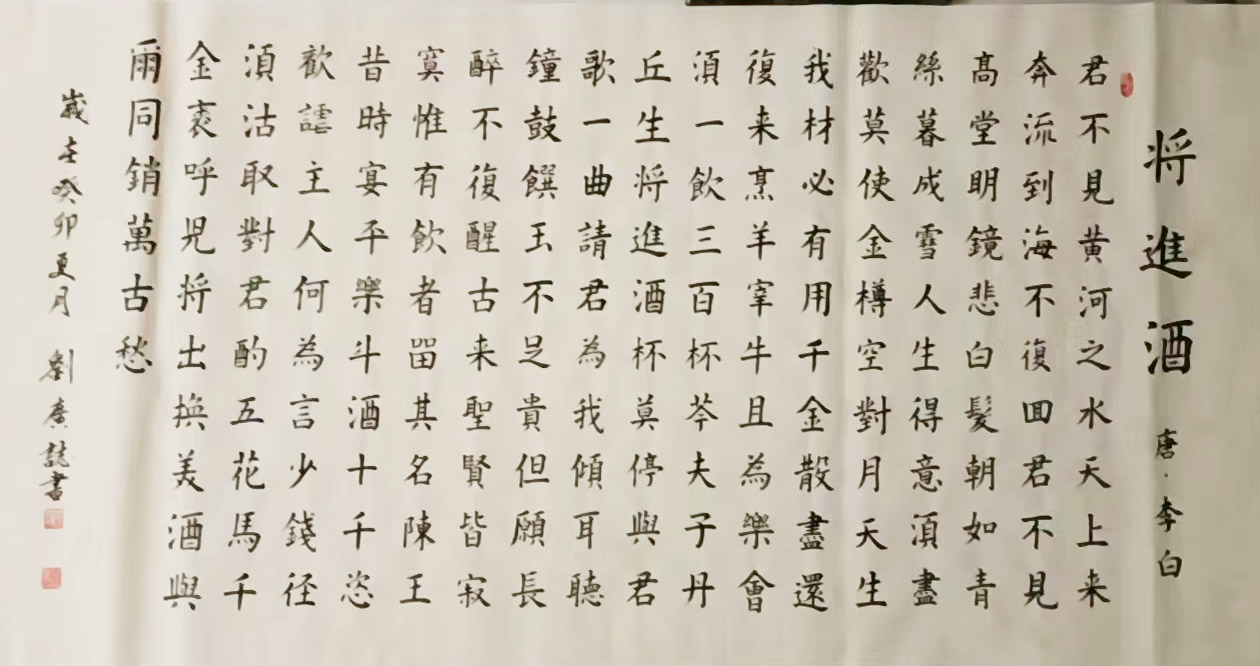 将進酒 唐·李白
君不見黄河之水天上来
奔流到海不復囬君不見
髙堂明鏡悲白髮朝如青
絲暮成雪人生得意湏盡
歡莫使金樽空對月天生
我材必有用千金散盡還
復来烹羊宰牛且為樂會
湏一飲三百杯芩夫子丹
丘生将進酒杯莫停與君
歌一曲請君為我傾耳聽
鐘鼓饌玉不足貴但願長
醉不復醒古来聖賢皆寂
寞惟有飲者留其名陳王
昔時宴平樂斗酒十千恣
歡謔主人何為言少錢径
湏沽取對君酌五花馬千
金裘呼児将出換美酒與
爾同銷萬古愁
嵗在癸卯夏月 劉誌書